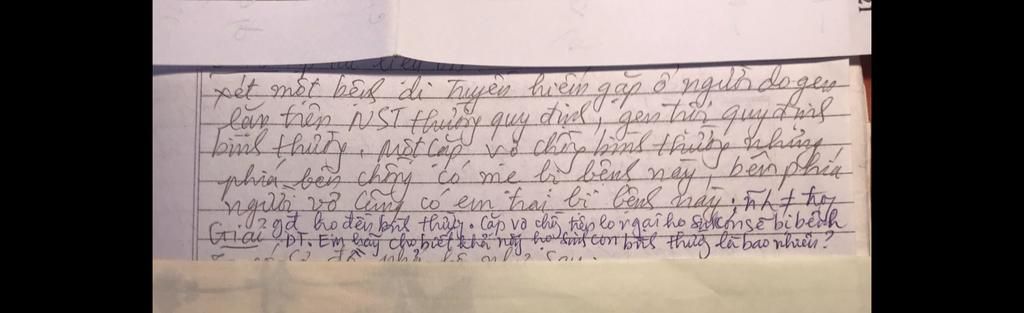 xét một bệnh di truyền hiếm gặp ở người do gen
lặn trên NST thường quy định, gen trội quy định
bình thường. Một cặp vợ chồng bình thường nhưng
phía bên chồng có mẹ bị bệnh này, bên phía
người vợ cũng có em trai bị bệnh này;
2 gđ họ đều bình thường. Cặp vợ chồng này lo ngại họ sinh con sẽ bị bệnh
Giải DT. Em hãy cho biết khả năng họ sinh con bình thường là bao nhiêu?